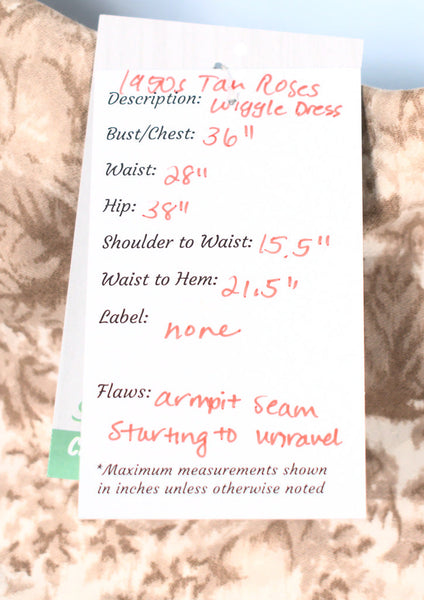 1950s Tan Roses
Description: Wiggle Dress
Bust/Chest: 36"
Waist: 28"
Hip: 38"
Shoulder to Waist: 15.5"
Waist to Hem: 21.5"
Label: none
Flaws: armpit seam
starting to unravel
*Maximum measurements shown
in inches unless otherwise noted